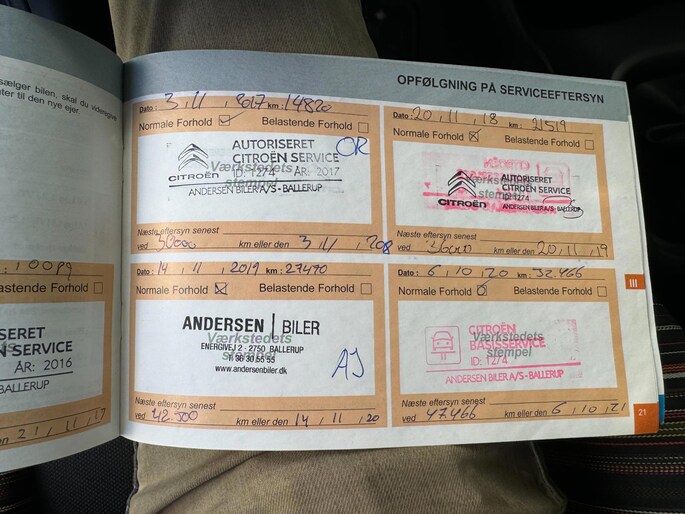 sælger bilen, skal du videregive
ter til den nye ejer.
: 10089
astende Forhold
SERET
N SERVICE
ÅR: 2016
LERUP
en 21/11/17
OPFØLGNING PÅ SERVICEEFTERSYN
Dato: 3/11/2017 km: 14820
Normale Forhold Belastende Forhold
AUTORISERET
CITROËN SERVICE
Værkstedets
CITROËN ID: 1274 ÅR: 2017
stempel
ANDERSEN BILER A/S - BALLERUP
OR
Næste eftersyn senest
ved 30000 km eller den 3/11/2018
Dato: 20/11/18 km: 21519
Normale Forhold Belastende Forhold
AUTORISERET
Værkstedets
CITROËN SERVICE
ID: 1274
CITROËN stempel
ANDERSEN BILER A/S - BALLERUP
Næste eftersyn senest
ved 36000 km eller den 20/11/19
Dato: 14/11/2019 km: 27470
Normale Forhold Belastende Forhold
ANDERSEN | BILER
Værkstedets
ENERGIVEJ 2 - 2750 BALLERUP
stempel
www.andersenbiler.dk
AJ
Næste eftersyn senest
ved 42500 km eller den 14/11/20
Dato: 6/10/20 km: 32466
Normale Forhold Belastende Forhold
CITROËN
Værkstedets
BASISSERVICE
ID: 1274 stempel
ANDERSEN BILER A/S - BALLERUP
Næste eftersyn senest
ved 47466 km eller den 6/10/21
III
21